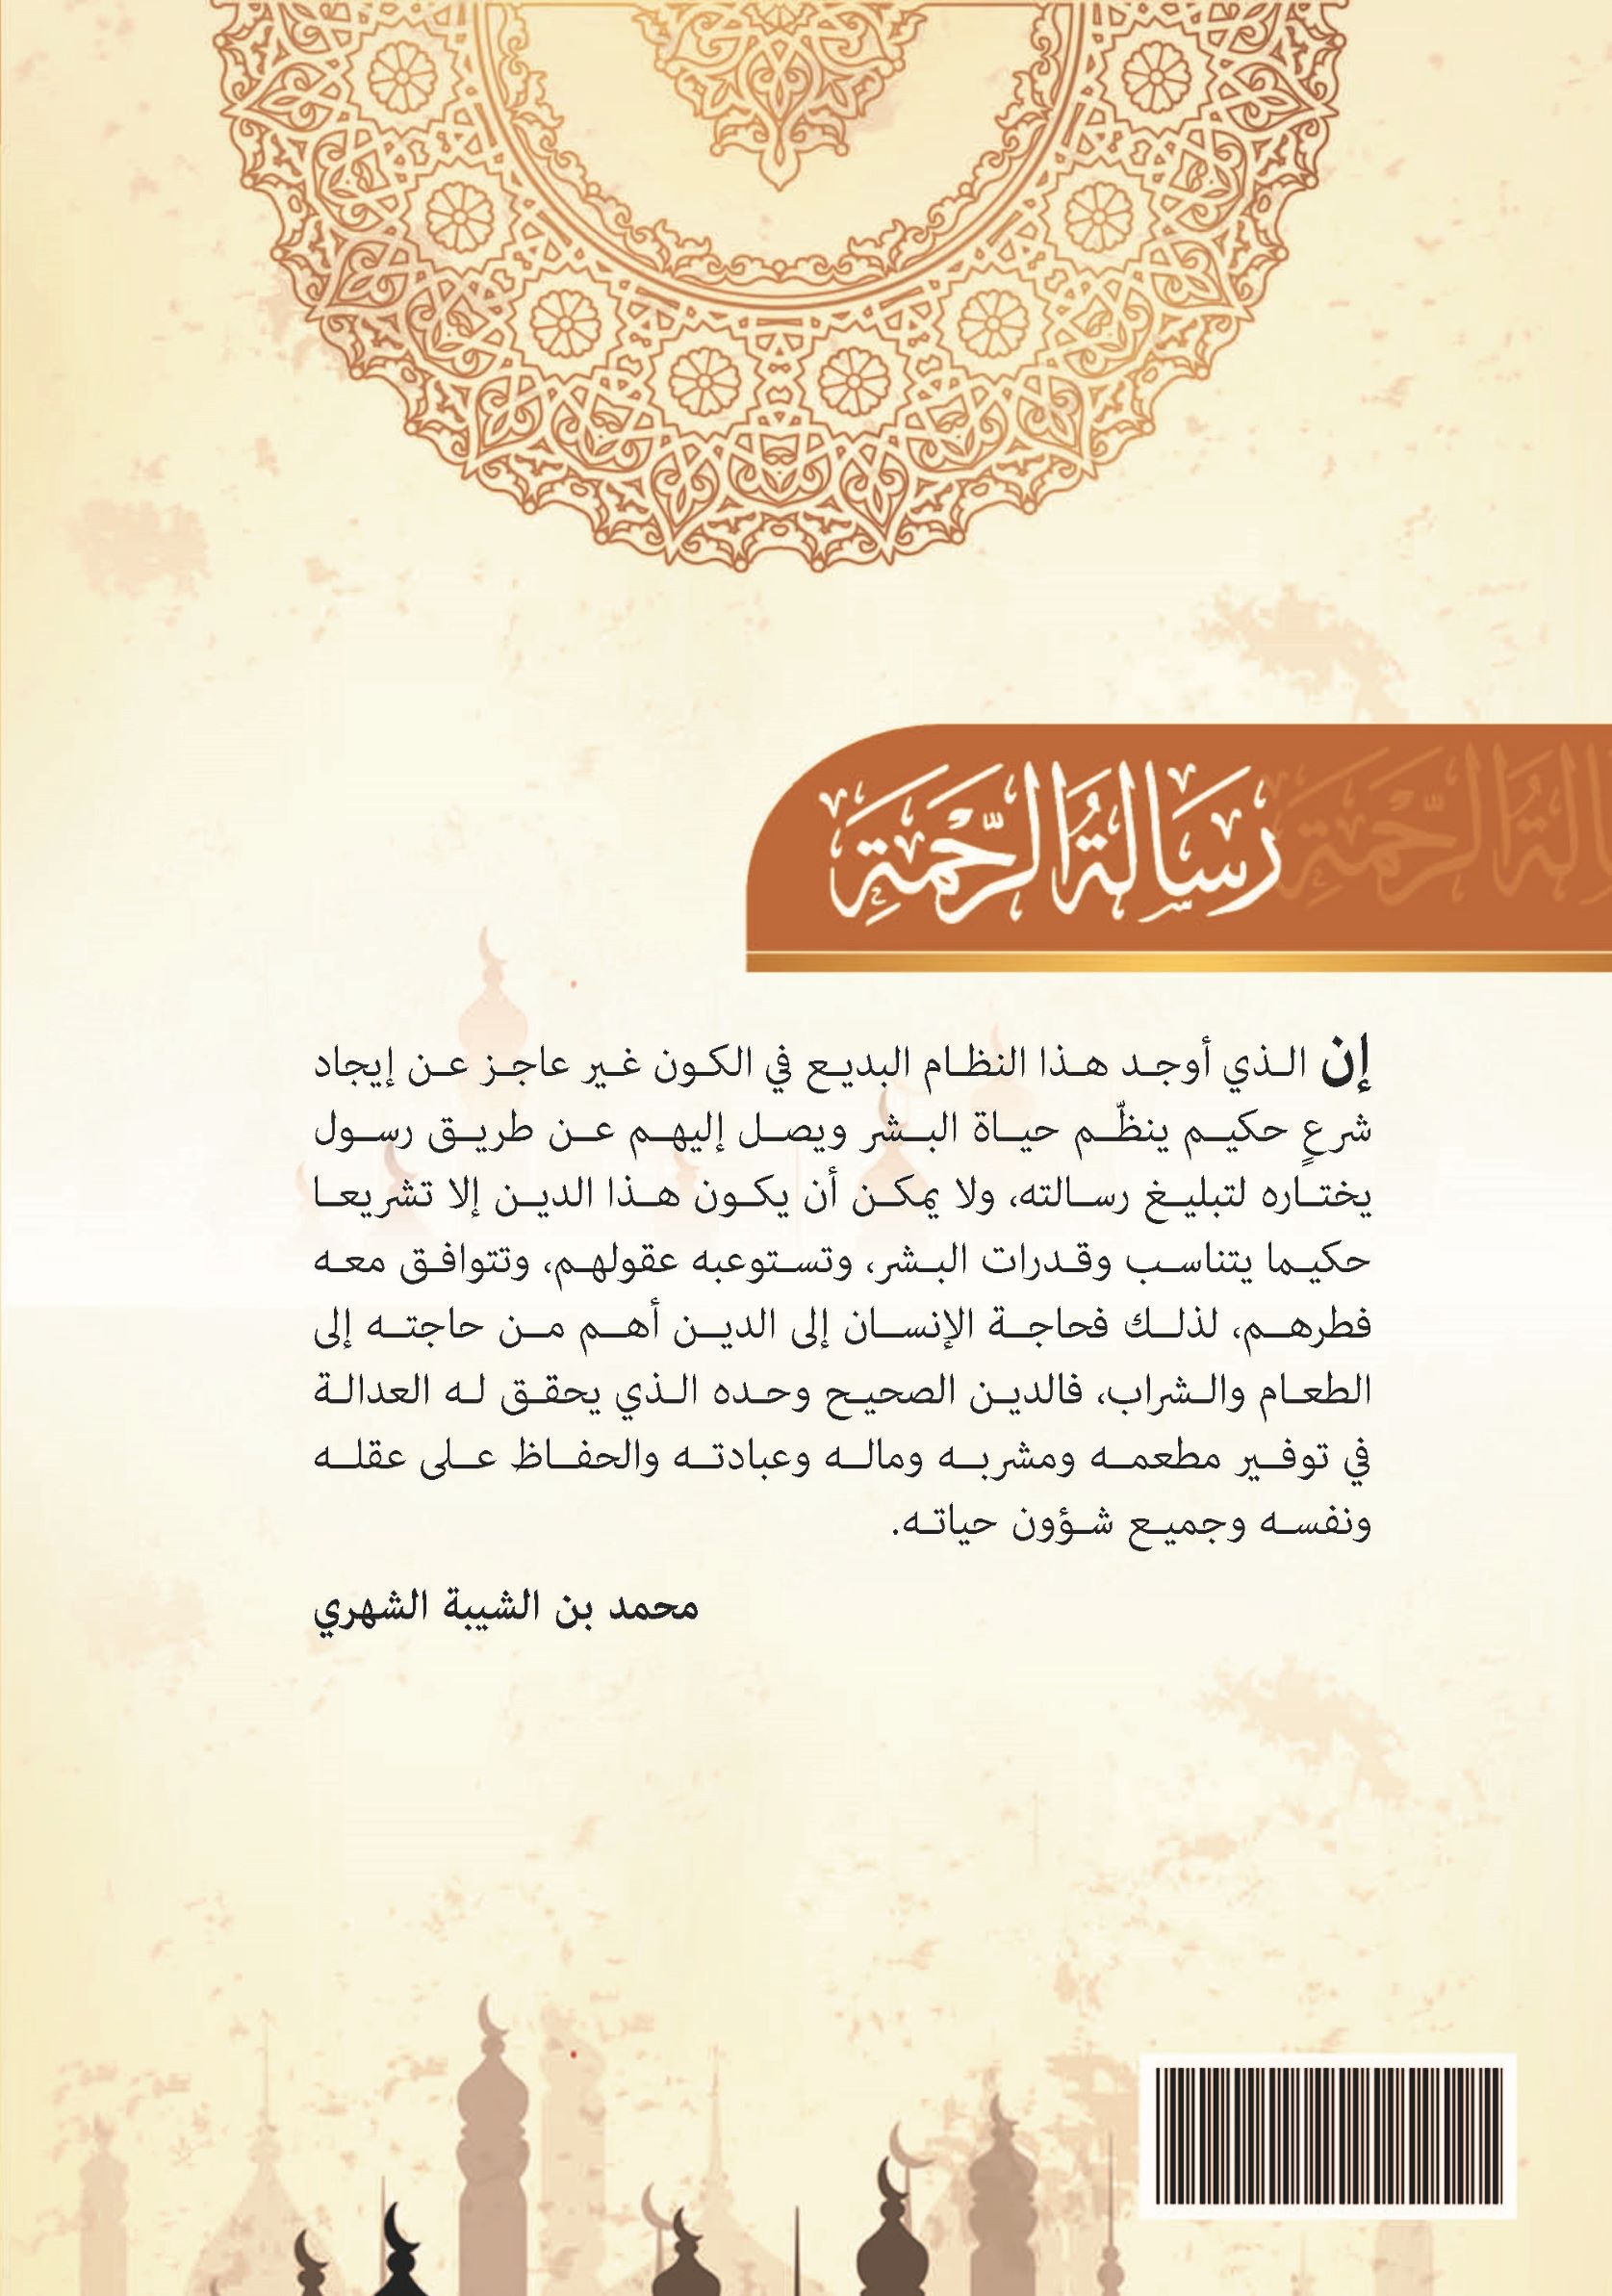 رِسَالَةُ الرَّحْمَةِ
إن الذي أوجد هذا النظام البديع في الكون غير عاجز عن إيجاد
شرعٍ حكيم ينظّم حياة البشر ويصل إليهم عن طريق رسول
يختاره لتبليغ رسالته، ولا يمكن أن يكون هذا الدين إلا تشريعا
حكيما يتناسب وقدرات البشر، وتستوعبه عقولهم، وتتوافق معه
فطرهم، لذلك فحاجة الإنسان إلى الدين أهم من حاجته إلى
الطعام والشراب، فالدين الصحيح وحده الذي يحقق له العدالة
في توفير مطعمه ومشربه وماله وعبادته والحفاظ على عقله
ونفسه وجميع شؤون حياته.
محمد بن الشيبة الشهري